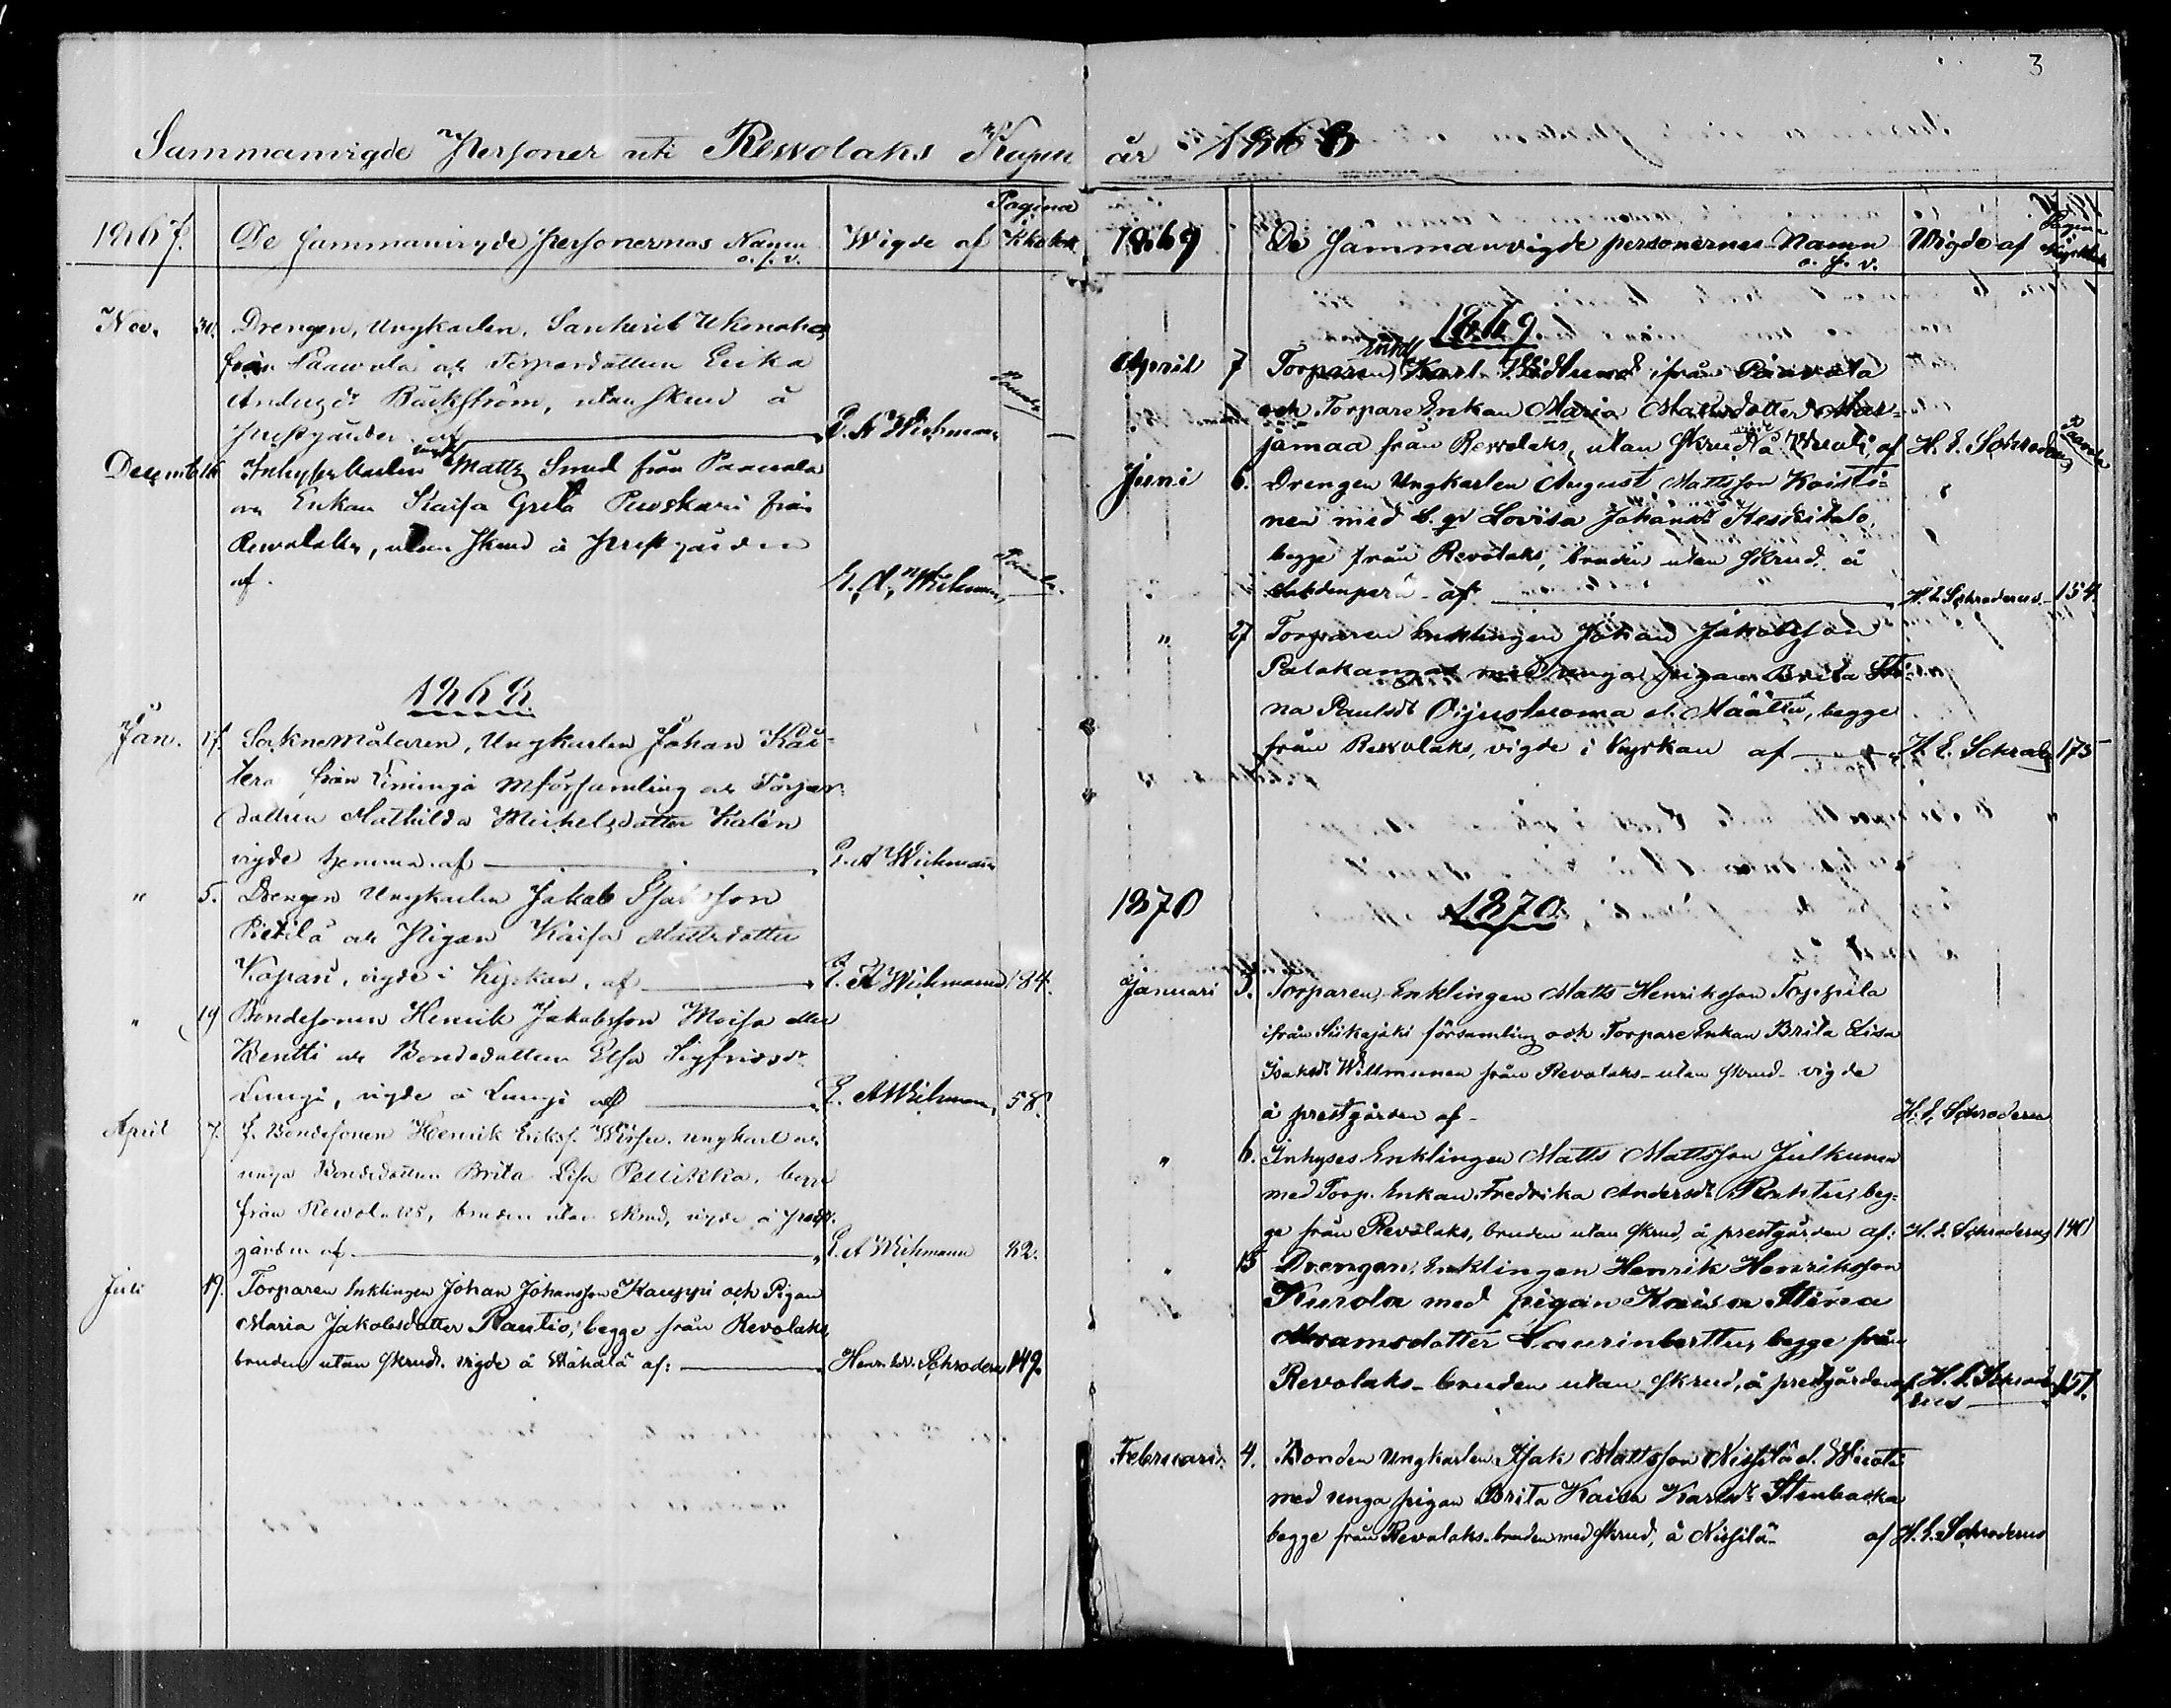 3
Sammanvigde Personer uti Rewolaks Kapell år 1868
1867. De sammanvigde personernas Namn o. s. v. Wigde af Pagina i Kboken
Nov. 30. Drengen, Ungkarlen,
från Paavola och Torparedottren Erika
Andersdr Bäckström, utan skrud å
prestgården af E. A. Wichmann Paavola
Decemb. Inhyses Karlen Matts Smed från Paavola
och Enkan Kaisa Greta från
Rewolaks, utan skrud å prestgården
af. E. A. Wichmann Paavola
1868
Jan. 17. Sockne målaren, Ungkarlen Johan
från Limingo Mförsamling och Torpare
dottren Mathilda Michelsdotter Kalén
vigde hemma af E. A. Wichmann
" 5. Drengen Ungkarlen Jakob
Pietilä och Pigan Kaisa Mattsdotter
Kopari, vigde i Kyrkan, af E. A. Wichmann 184.
" 19 Bondesonen Henrik Jakobsson eller
Kentti och Bondedottren Elsa Sigfridsdr
Lungi, vigde å Lungi af E. A. Wichmann, 58.
April 7. f. Bondesonen Henrik Erikss. ungkarl och
unga Bondedottren Brita Lisa Pellikka, begge
från Rewolaks, bruden utan skrud, vigde å prest-
gården af. E. A. Wichmann 82.
Juli 19. Torparen Enklingen Johan Johansson Kauppi och Pigan
Maria Jakobsdotter Rautio, begge från Revolaks
bruden utan skrud. vigde å af: Henr. Edv. Schroderus 149.
1869 De sammanvigde personernes Namn o. s. v. Wigde af Pagina i Kyrkbok
1869.
April 7 Torparen, Enkl Karl Widlund ifrån Paavola
och Torpare Enkan Maria Mattsdotter Mar=
jamaa från Rewolaks, utan skrud vigde å af H. E. Schroderus Paavola
Juni 6. Drengen Ungkarlen August Mattsson Koisti=
nen med Lovisa Johansdr Keskitalo,
begge från Revolaks, bruden utan skrud å
af H. E. Schroderus 154.
" 27 Torparen Enklingen Johan Jakobsson
Palokangas med unga pigan Brita Sti=
na Paulsdr el. Määttä, begge
från Rewolaks, vigde i Kyrkan af H. E. Schrods 175
1870 1870
Januari 3. Torparen, Enklingen Matts Henriksson Torppila
ifrån Siikajoki församling och Torpare Enkan Brita Lisa
Isaksdr Willmunen från Revolaks - utan skrud - vigde
å prestgården af - H. E. Schroderus
" 6. Inhyses Enklingen Matts Mattsson Julkunen
med Torp. Enkan Fredrika Andersdr Rahtu, beg=
ge från Revolaks, bruden utan skrud, å prestgården af: H. E. Schroderus 140
" 15 Drengen, Enklingen Henrik Henriksson
Kurola med pigan Kaisa Stina
Abramsdotter Laurinherttu, begge från
Revolaks - bruden utan skrud, å prestgården af H. E. Schrode-
rus 151.
Februari 4. Bonden Ungkarlen Isak Mattsson Nissilä el.
med unga pigan Brita Kaisa Karlsdr Stenbacka
begge från Revolaks - bruden med skrud, å Nissilä af H. E. Schroderus